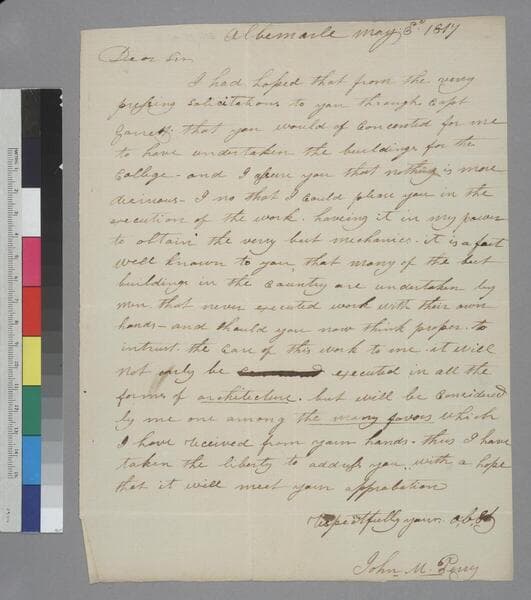 Albemarle May 3rd 1817
Dear Sir
I had hoped that from the very
pressing solicitations to you through Capt
Garrett that you would of Concented for me
to have undertaken the buildings for the
College - and I assure you that nothing is more
decirous - I no that I could please you in the
execution of the work. haveing it in my power
to obtain the very best mechanics. it is a fact
well known to you, that many of the best
buildings in the Country are undertaken by
men that never executed work with their own
hands - and should you now think proper to
intrust the care of this work to me it will
not only be executed in all the
forms of architecture. but will be Conciderd
by me one among the many favors which
I have received from your hands. thus I have
taken the liberty to address you with a hope
that it will meet your approbation
Respectfully your
John M. Perry